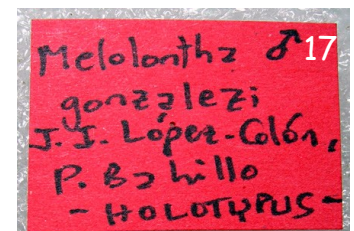 Melolontha ♂ 17
gonzalezi
J.I. López-Colón,
P. Bahillo
- HOLOTYPUS -